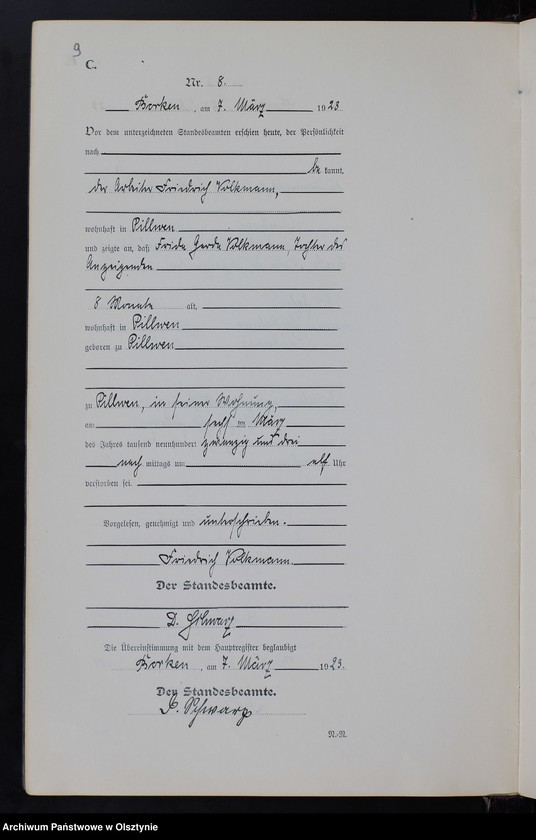 9
C.
Nr. 8.
Borken, am 7. März 1923
Vor dem unterzeichneten Standesbeamten erschien heute, der Persönlichkeit
nach
bekannt,
der Arbeiter Friedrich Volkmann,
wohnhaft in Pillwen
und zeigte an, daß Frida Gerda Volkmann, Tochter des
Anzeigenden
8 Monate alt,
wohnhaft in Pillwen
geboren zu Pillwen
zu Pillwen, in seiner Wohnung,
am sechs ten März
des Jahres tausend neunhundert zwanzig und drei
nach mittags um elf Uhr
verstorben sei.
Vorgelesen, genehmigt und unterschrieben.
Friedrich Volkmann
Der Standesbeamte.
D. Schwarz
Die Übereinstimmung mit dem Hauptregister beglaubigt
Borken, am 7. März 1923.
Der Standesbeamte.
D. Schwarz
N.-N.
Archiwum Państwowe w Olsztynie